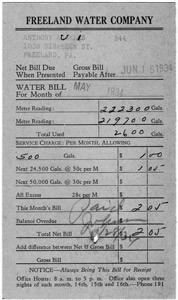 FREELAND WATER COMPANY
ANTHONY 844
1038 BIRKBECK ST.
FREELAND, PA.
Net Bill Due Gross Bill
When Presented Payable After JUN 16 1934
WATER BILL MAY 1934
For Month of
Meter Reading: 222300 Gals.
Meter Reading: 219700 Gals.
Total Used 2600 Gals.
SERVICE CHARGE: PER MONTH, ALLOWING
500 Gals. $ 1 00
Next 24,500 Gals. @ 50c per M $ 1 05
Next 50,000 Gals. @ 30c per M $
All Excess 28c per M $
This Month's Bill $ 2 05
Balance Overdue $
Total Net Bill $ 2 05
Add difference between Net & Gross Bill $
Gross Bill $
NOTICE—Always Bring This Bill for Receipt
Office Hours: 8 a. m. to 5 p. m. Office also open three
nights of each month, 14th, 15th and 16th—Phone 191